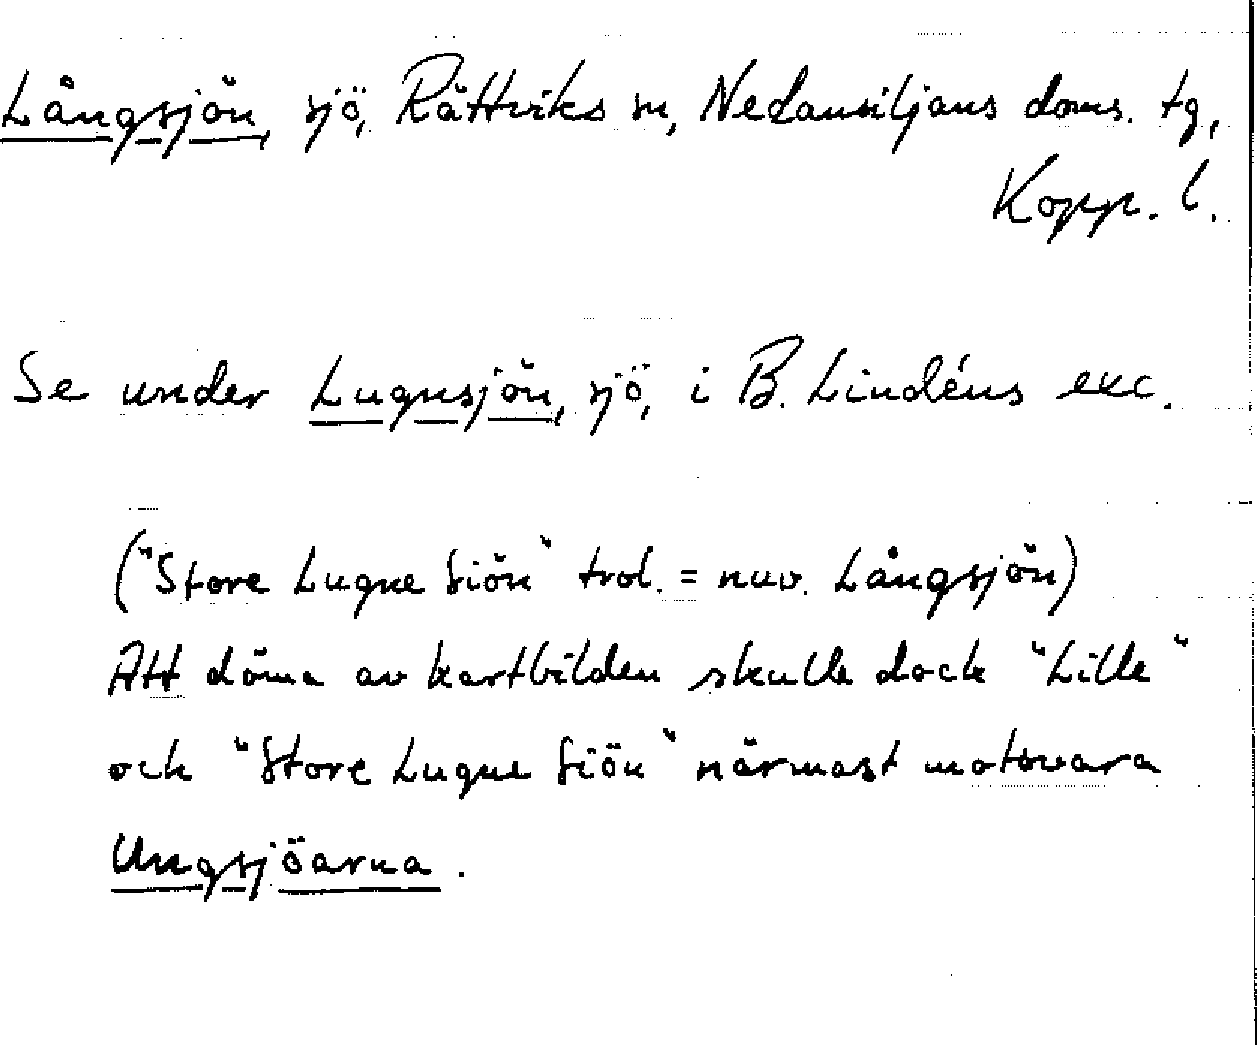 Långsjön, sjö, Rättviks sn, Nedansiljans doms. tg,
Kopp. l.
Se under Lugnsjön, sjö, i B. Lindéns exc.
("Store Lugne Siön" trol. = nuv. Långsjön)
Att döma av kartbilden skulle dock "Lille"
och "Store Lugne Siön" närmast motsvara
Ungsjöarna.